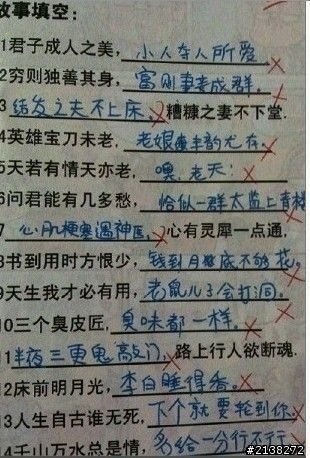 故事填空：
1君子成人之美，小人夺人所爱。
2穷则独善其身，富则妻妾成群。
3 结发之夫不上床，糟糠之妻不下堂.
4英雄宝刀未老，老娘丰韵尤存。
5天若有情天亦老，噢，老天！
6问君能有几多愁，恰似一群太监上青楼
7 心肌梗塞遇神医，心有灵犀一点通，
8书到用时方恨少，钱到月底不够花。
9天生我才必有用，老鼠儿子会打洞。
10三个臭皮匠，臭味都一样。
11半夜三更鬼敲门，路上行人欲断魂.
12床前明月光，李白睡得香。
13人生自古谁无死，下个就要轮到你.
14千山万水总是情，多给一分行不行
#2138272